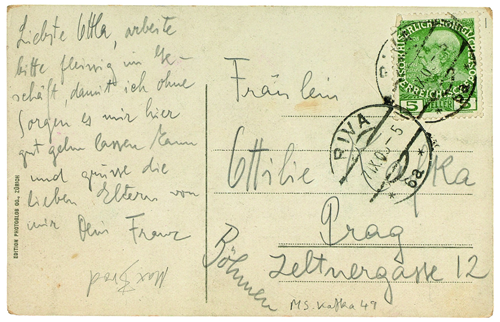 Liebste Ottla, arbeite
bitte fleissig im Ge-
schäft, damit ich ohne
Sorgen es mir hier
gut gehn lassen kann
und grüsse die
lieben Eltern von
mir Dein Franz
Max Brod
EDITION PHOTOGLOB CO., ZÜRICH
Fräulein
Ottilie Kafka
Prag
Zeltnergasse 12
Böhmen
MS. Kafka 49
RIVA
IX 09-5
* 6a *
5 HELLER 5